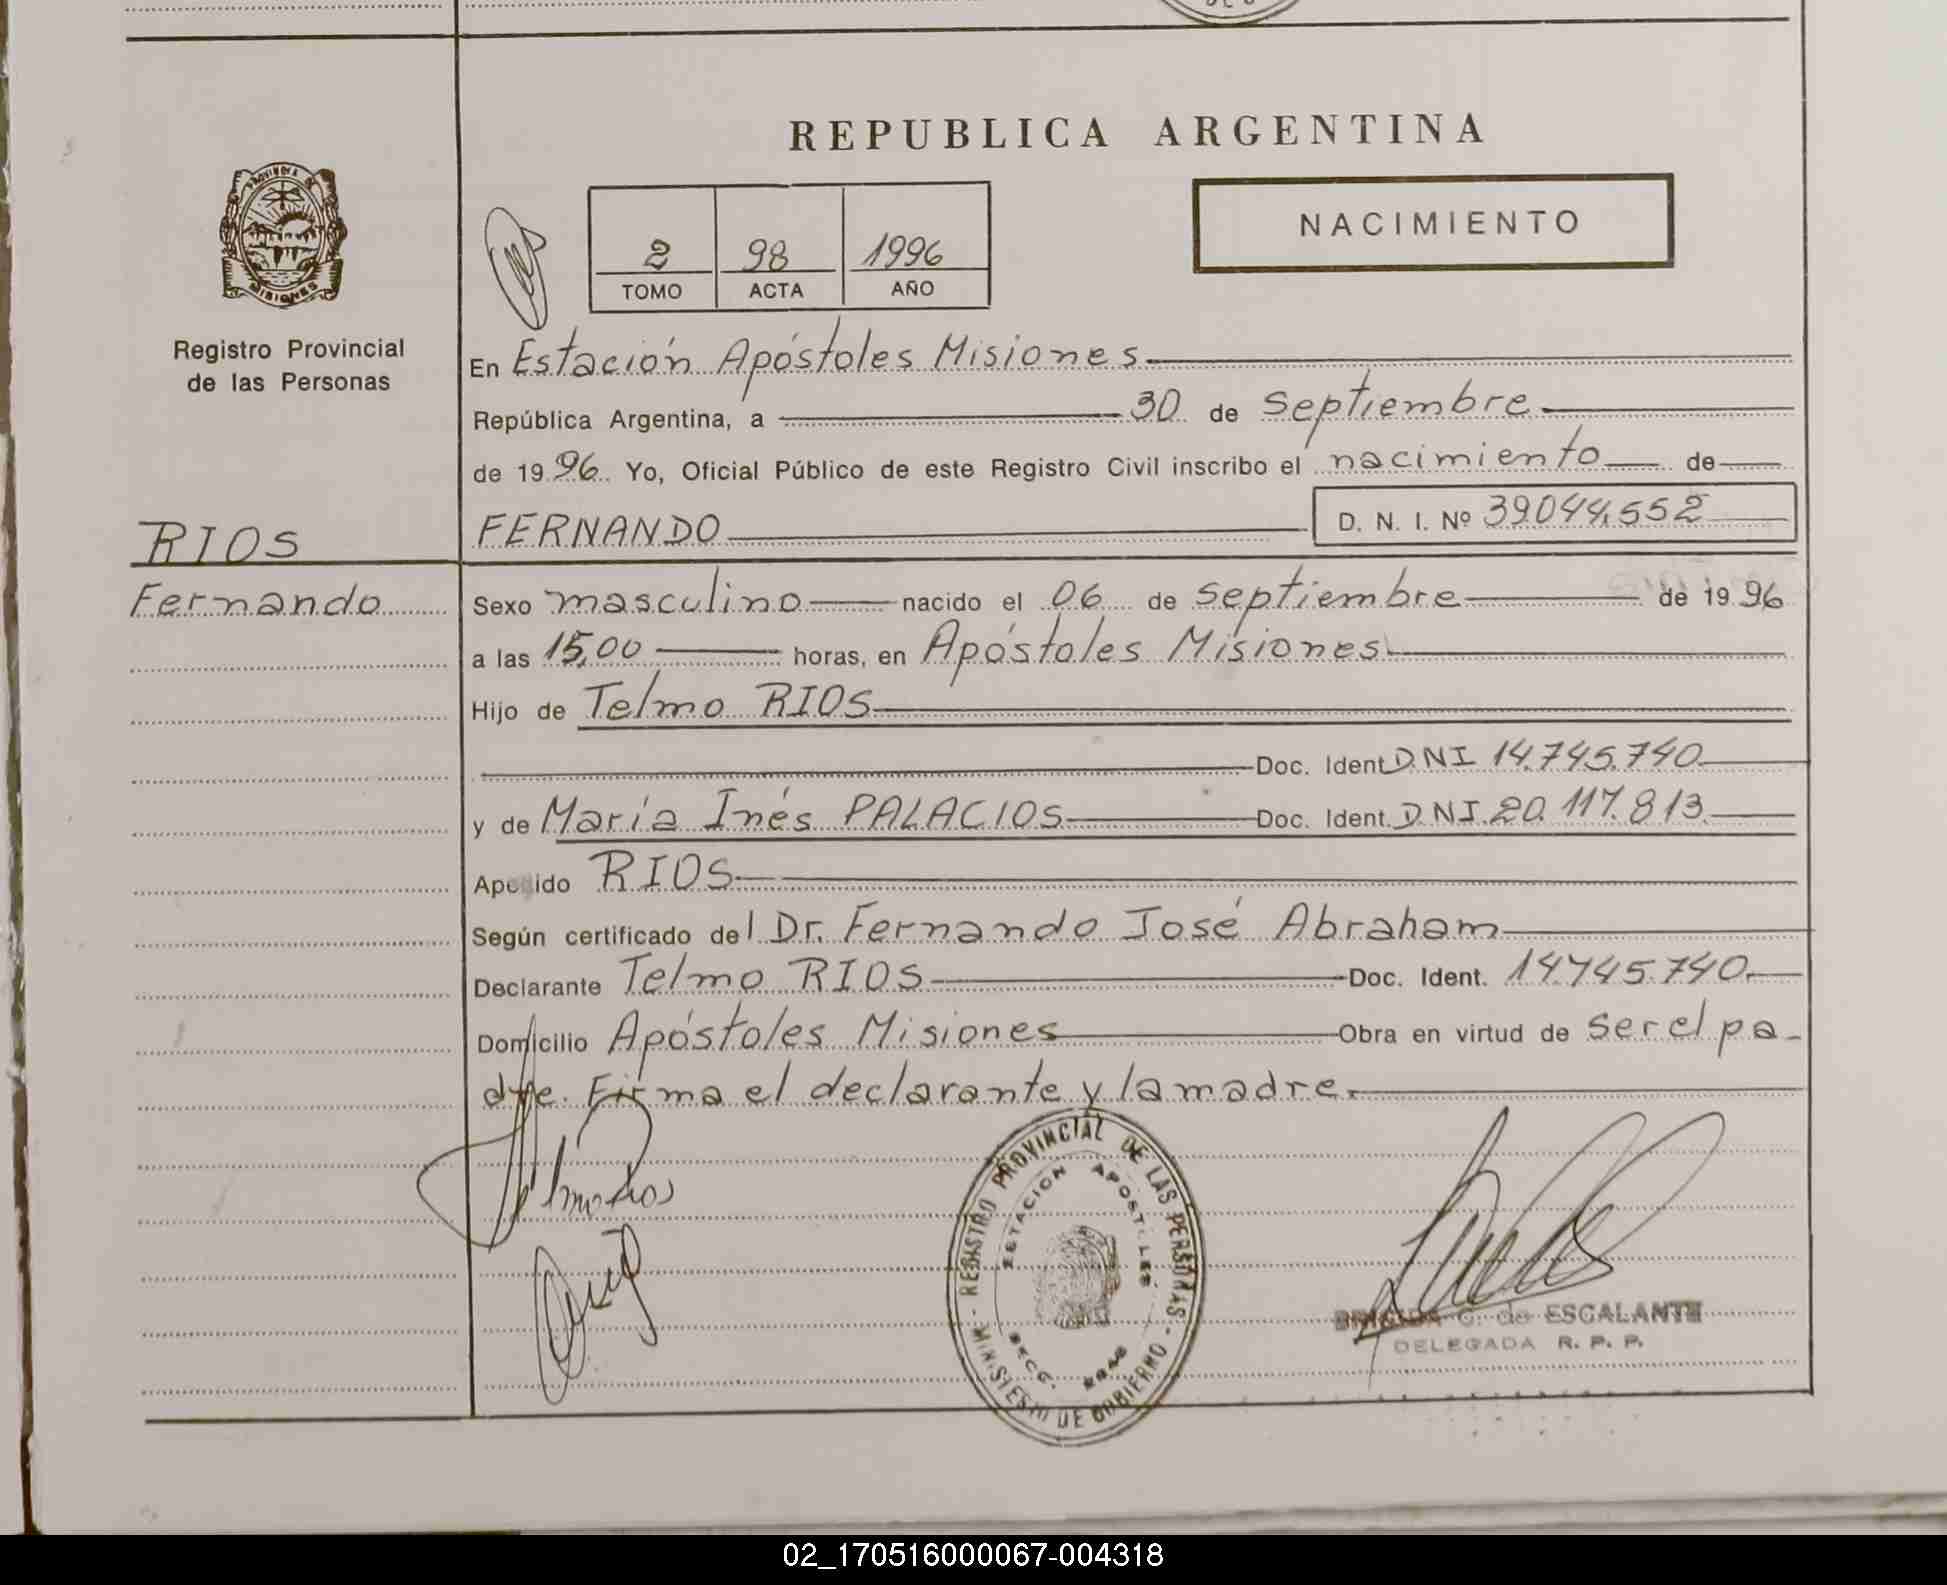 REPUBLICA ARGENTINA
PROVINCIA DE
MISIONES
Registro Provincial
de las Personas
2 98 1996
TOMO ACTA AÑO
NACIMIENTO
En Estación Apóstoles Misiones
República Argentina, a 30 de septiembre
de 1996 Yo, Oficial Público de este Registro Civil inscribo el nacimiento de
RIOS
FERNANDO D. N. I. Nº 39044.552
Fernando
Sexo masculino nacido el 06 de septiembre de 1996
a las 15,00 horas, en Apóstoles Misiones
Hijo de Telmo RIOS
Doc. Ident. DNI 14.745.740
y de María Inés PALACIOS Doc. Ident. DNI 20.117.813
Apellido RIOS
Según certificado del Dr. Fernando José Abraham
Declarante Telmo RIOS Doc. Ident. 14.745.740
Domicilio Apóstoles Misiones Obra en virtud de ser el pa-
dre. Firma el declarante y la madre.
REGISTRO PROVINCIAL DE LAS PERSONAS
ESTACION APOSTOLES
MINISTERIO DE GOBIERNO
BRIGIDA C. de ESCALANTE
DELEGADA R. P. P.
02_170516000067-004318